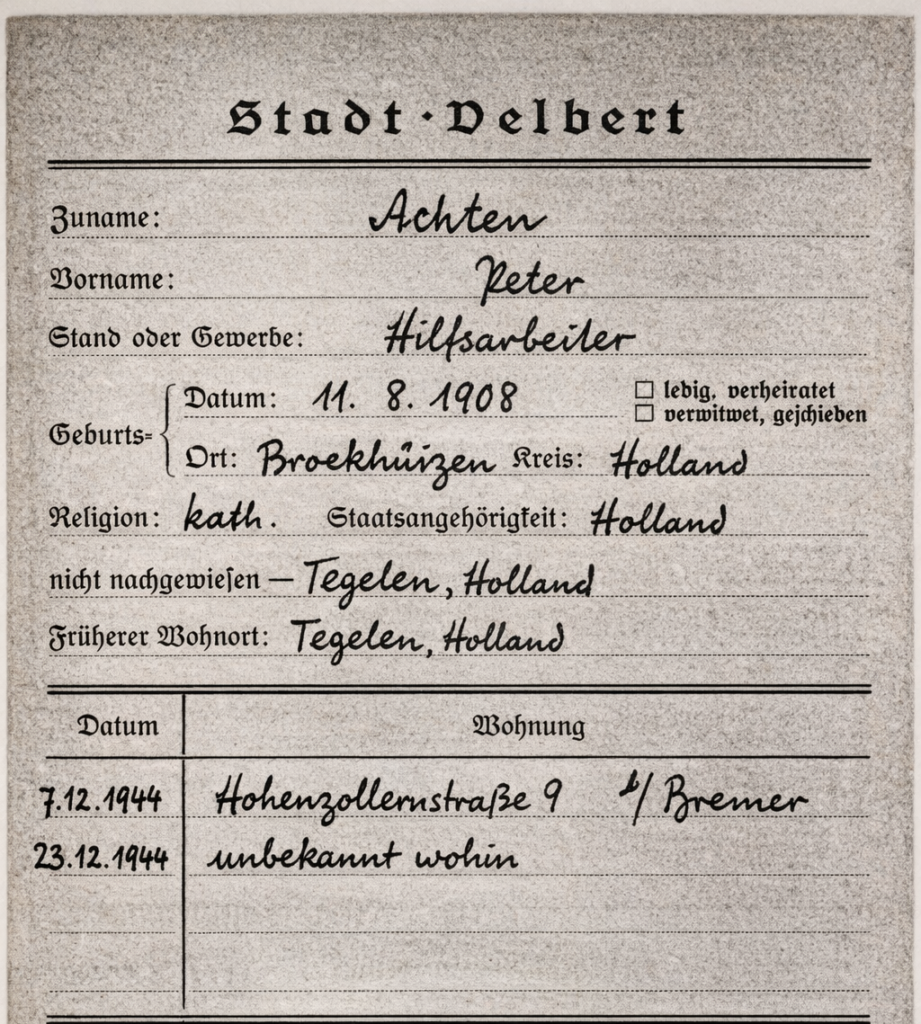 Stadt · Velbert
Zuname: Achten
Vorname: Peter
Stand oder Gewerbe: Hilfsarbeiter
Geburts= Datum: 11. 8. 1908 ☐ ledig, verheiratet
☐ verwitwet, geschieden
Ort: Broekhûizen Kreis: Holland
Religion: kath. Staatsangehörigkeit: Holland
nicht nachgewiesen — Tegelen, Holland
Früherer Wohnort: Tegelen, Holland
Datum Wohnung
7.12.1944 Hohenzollernstraße 9 b/ Bremer
23.12.1944 unbekannt wohin